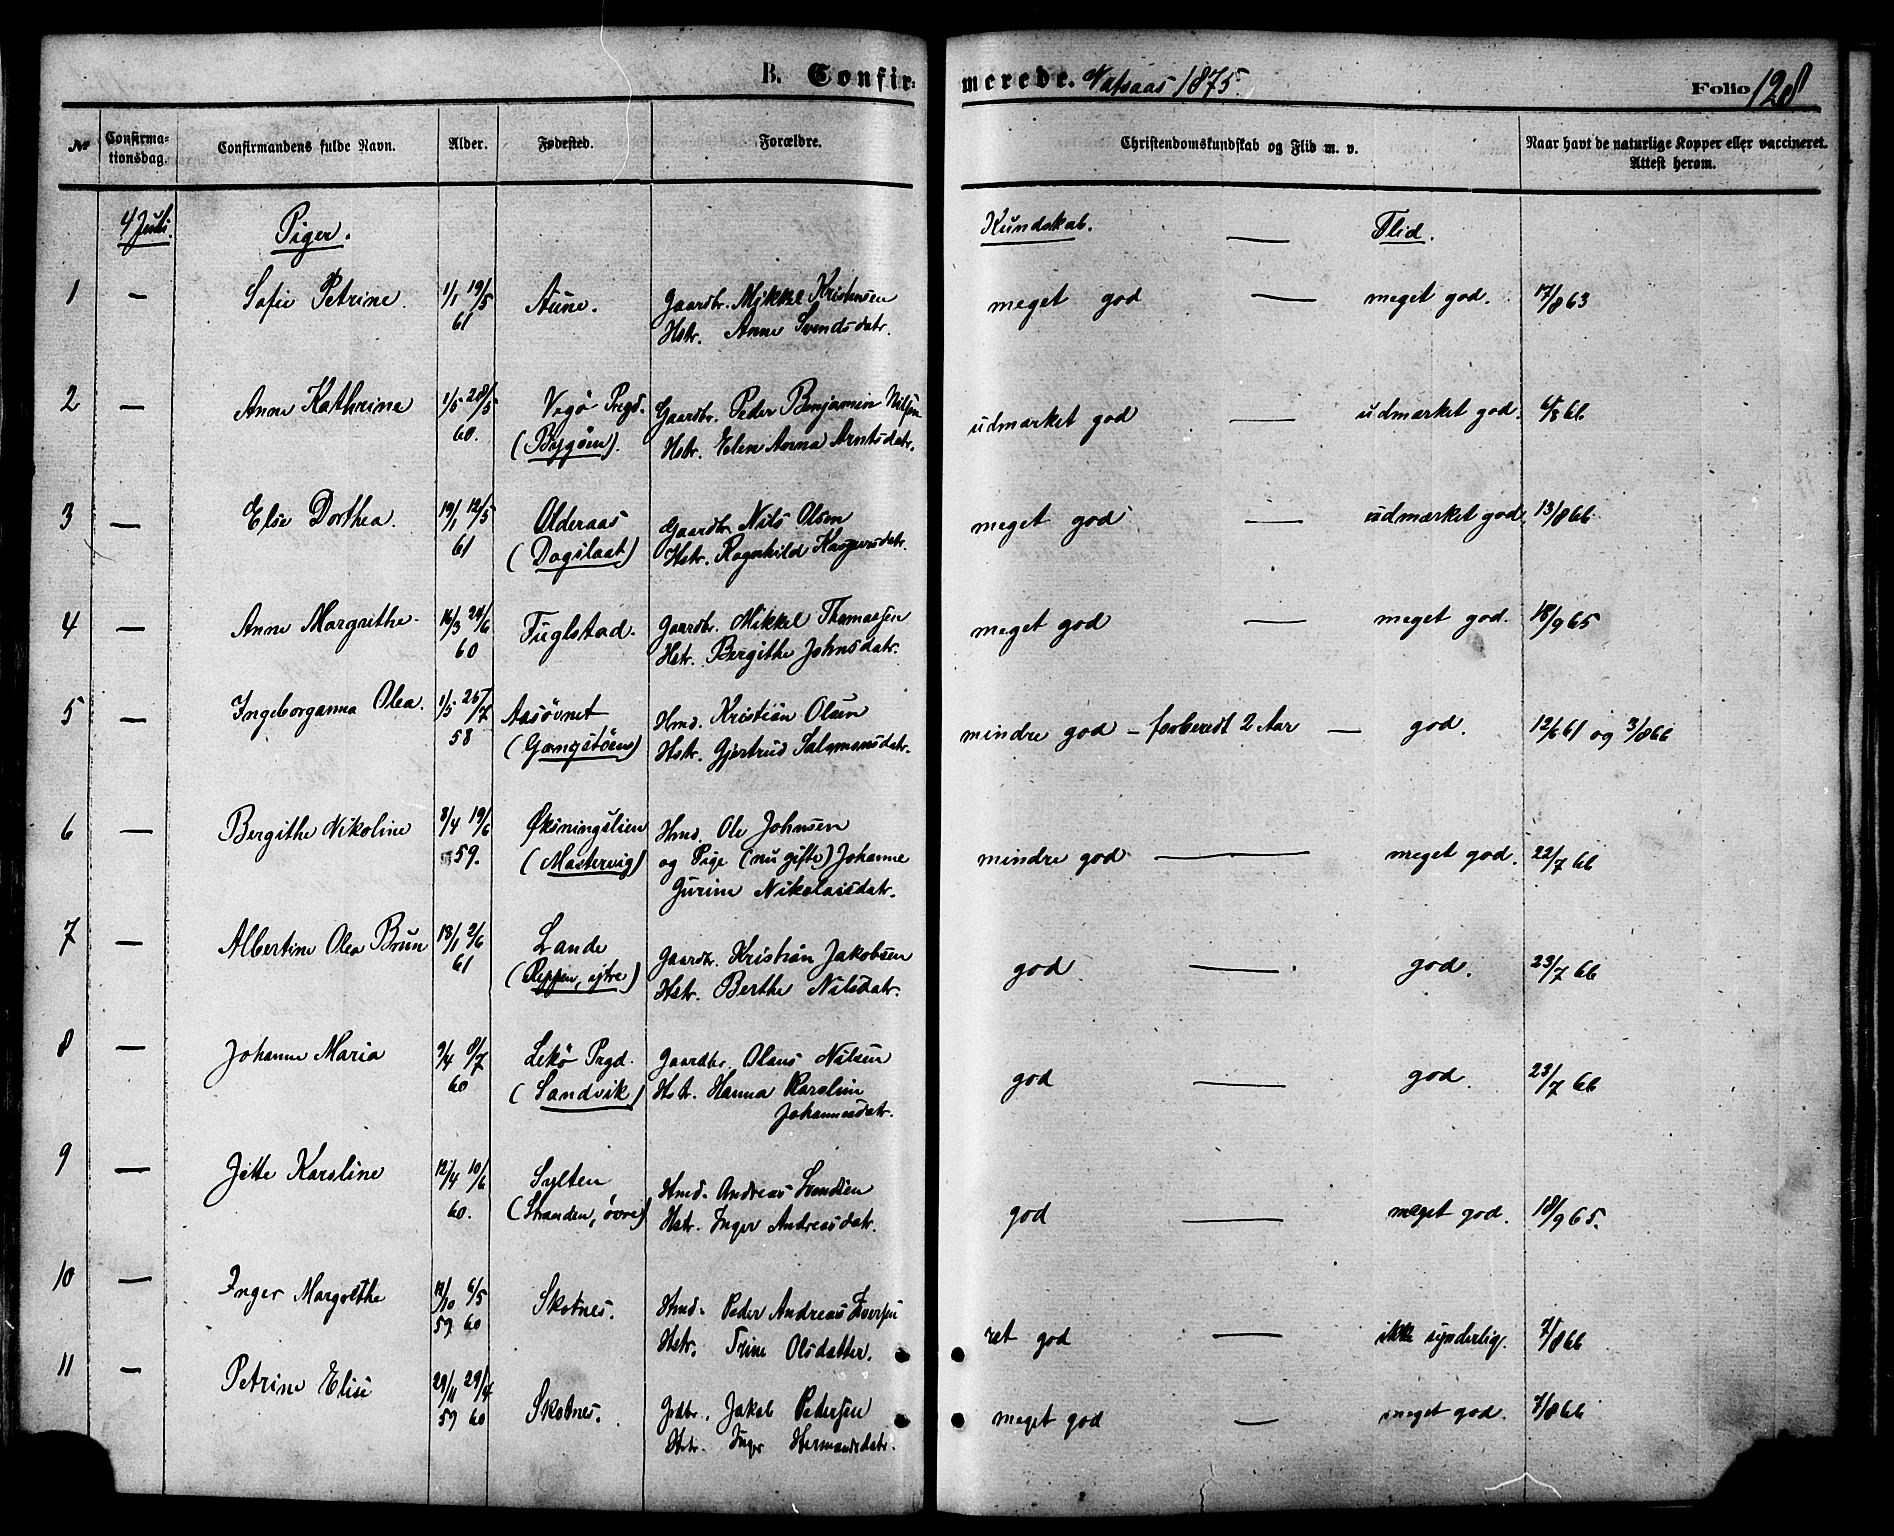 B. Confirmerede. Vatsaas 1875.
Folio 128
No
Confirmationsdag.
Confirmandens fulde Navn.
Alder.
Fødested.
Forældre.
Christendomskundskab og Flid m. v.
Naar havt de naturlige Kopper eller vaccineret. Attest herom.
4 Juli. Piger. Kundskab. — Flid.
1 — Sofie Petrine. 1/1 19/5 Aune. Gaardbr. Mikkel Kristensen meget god — meget god. 17/8 63
61 Hstr. Anne Svendsdatr.
2 — Anne Kathrine 1/5 28/5 Vegø Prgd. Gaardbr. Peder Benjamin Nilsen udmærket god — udmærket god. 6/8 66
60. (Bøsgøen). Hstr. Elen Anna Arntsdatr.
3 — Else Dorthea. 19/1 12/5 Olderaas Gaardbr. Nils Olsen meget god — udmærket god. 13/8 66
61 (Dagslaat) Hstr. Ragnhild Kaspersdatr.
4 — Anne Margrethe. 16/3 24/6 Fuglstad. Gaardbr. Mikkel Thomassen meget god — meget god. 18/9 65
60 Hstr. Bergithe Johnsdatr.
5 — Ingeborganna Olea. 1/5 25/7 Aasøvnet Hmd. Kristian Olsen mindre god – forberedt 2 Aar — god. 12/6 61 og 3/8 66
58 (Gangstøen) Hstr. Gjertrud Salamonsdatr.
6 — Bergithe Nikoline 8/4 19/6 Øksningslien Hmd. Ole Johnsen mindre god — meget god. 22/7 66
59. (Mastervig) og Pige (nu gifte) Johanne
Gurine Nikolaisdatr.
7 — Albertine Olea Brun 18/1 2/6 Lande Gaardbr. Kristian Jakobsen god — god. 23/7 66
61 (Reppen, ytre) Hstr. Berthe Nilsdatr.
8 — Johanne Maria 9/4 8/7 Lekø Prgd. Gaardbr. Olaus Nilsen god — god. 23/7 66
60 (Sandvik) Hstr. Hanna Karoline
Johannesdatr.
9 — Jitte Karoline 12/4 10/6 Sylten Hmd. Andreas Svendsen god — meget god. 18/9 65.
60. (Stranden, øvre) Hstr. Inger Andreasdatr.
10 — Inger Margrethe 12/10 6/5 Skotnes. Hmd. Peder Andreas Iversen ret god — ikke synderlig. 7/8 66
59 60 Hstr. Trine Olsdatter.
11 — Petrine Elise 29/11 29/4 Skotnes. Grdbr. Jakob Pedersen meget god — meget god. 7/8 66
59 60 Hstr. Inger Hermandsdatr.